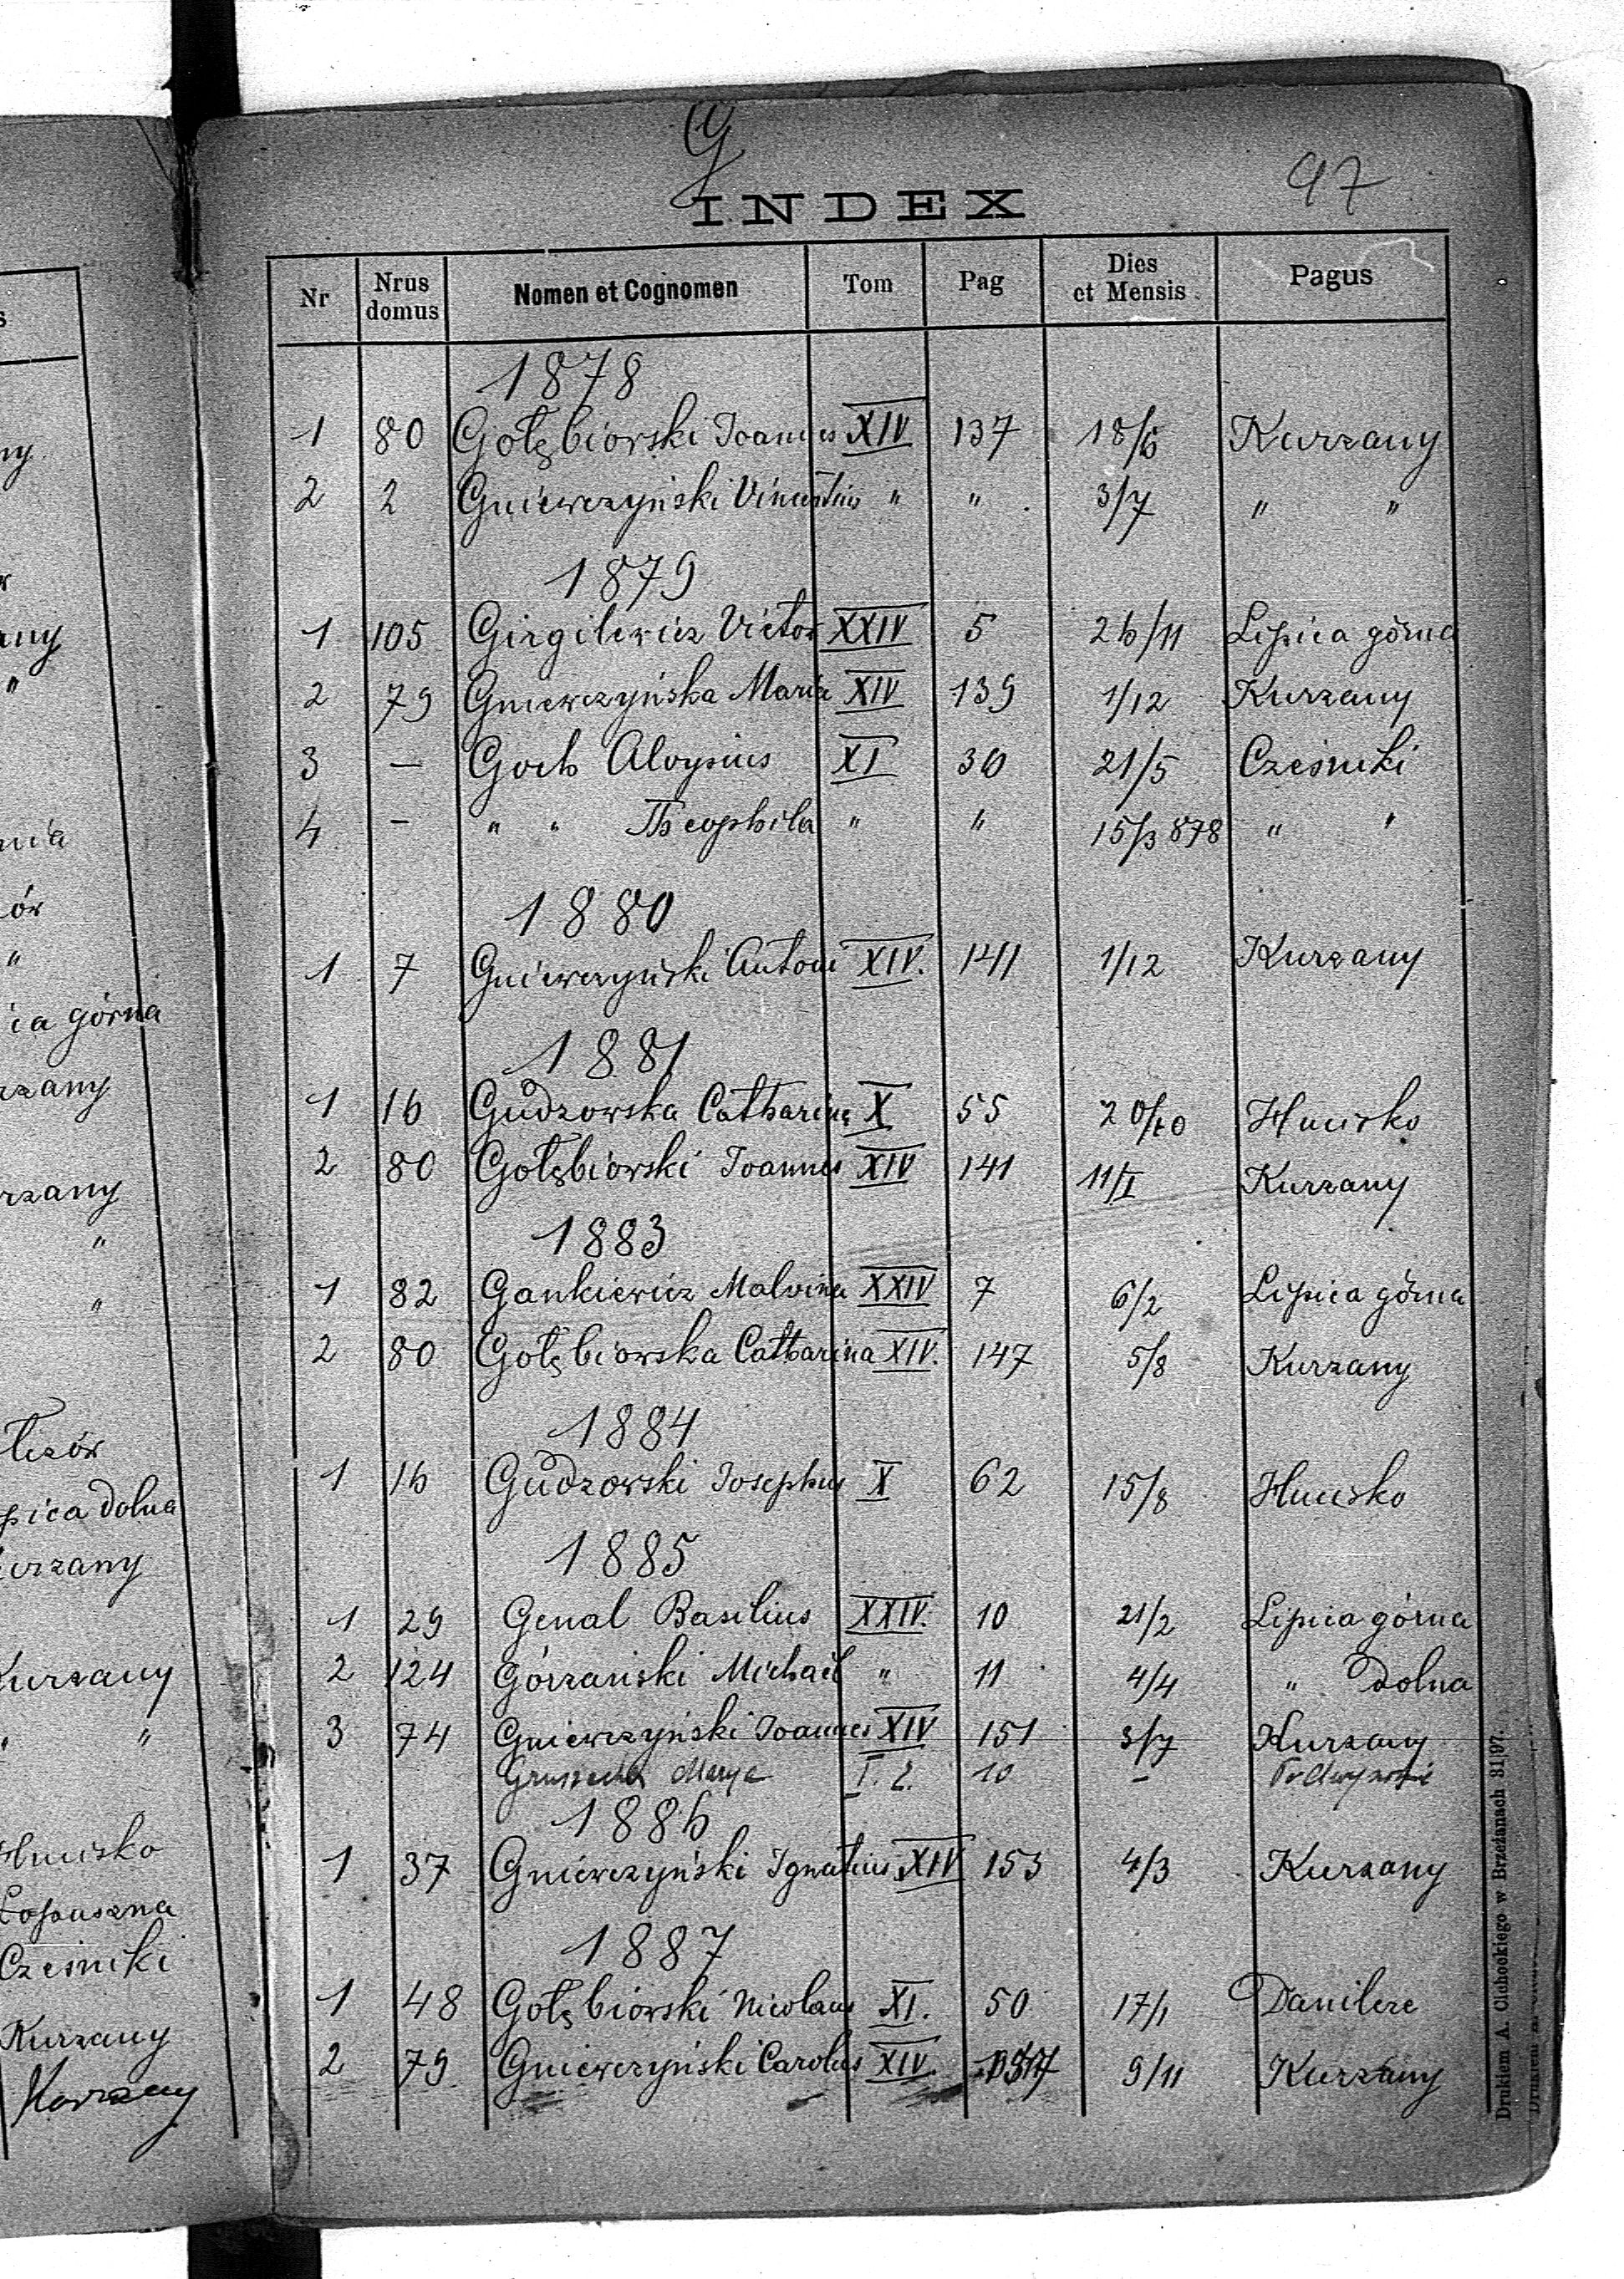 G
97
INDEX
Nr Nrus domus Nomen et Cognomen Tom Pag Dies et Mensis Pagus
1878
1 80 Gołębiowski Joannes XIV 137 18/6 Kurzany
2 2 Gniewczyński Vincentius " " 3/7 " "
1879
1 105 Girgilewicz Victor XXIV 5 26/11 Lipica górna
2 79 Gniewczyńska Maria XIV 139 1/12 Kurzany
3 — Goch Aloysius XI 30 21/5 Cześniki
4 — " " Theophila " " 15/3 878 " "
1880
1 7 Gniewczyński Antoni XIV. 141 1/12 Kurzany
1881
1 16 Gudzowska Catharina X 55 20/10 Hucisko
2 80 Gołębiowski Joannes XIV 141 11/I Kurzany
1883
1 82 Gankiewicz Malvina XXIV 7 6/2 Lipica górna
2 80 Gołębiowska Catharina XIV. 147 5/8 Kurzany
1884
1 16 Gudzowski Josephus X 62 15/8 Hucisko
1885
1 29 Genal Basilius XXIV. 10 21/2 Lipica górna
2 124 Górzański Michael " 11 4/4 " dolna
3 74 Gniewczyński Joannes XIV 151 3/7 Kurzany
Marya 10 —
1886
1 37 Gniewczyński Ignatius XIV 153 4/3 Kurzany
1887
1 48 Gołębiowski Nicolaus XI. 50 17/1 Danilcze
2 79 Gniewczyński Carolus XIV. 9/11 Kurzany
Drukiem A. Olchockiego w Brzeżanach 31|97.
ica górna
rzany
rzany
"
"
pica dolna
urzany
Kurzany
" "
Hucisko
Łopuszna
Cześniki
Kurzany
Kurzany